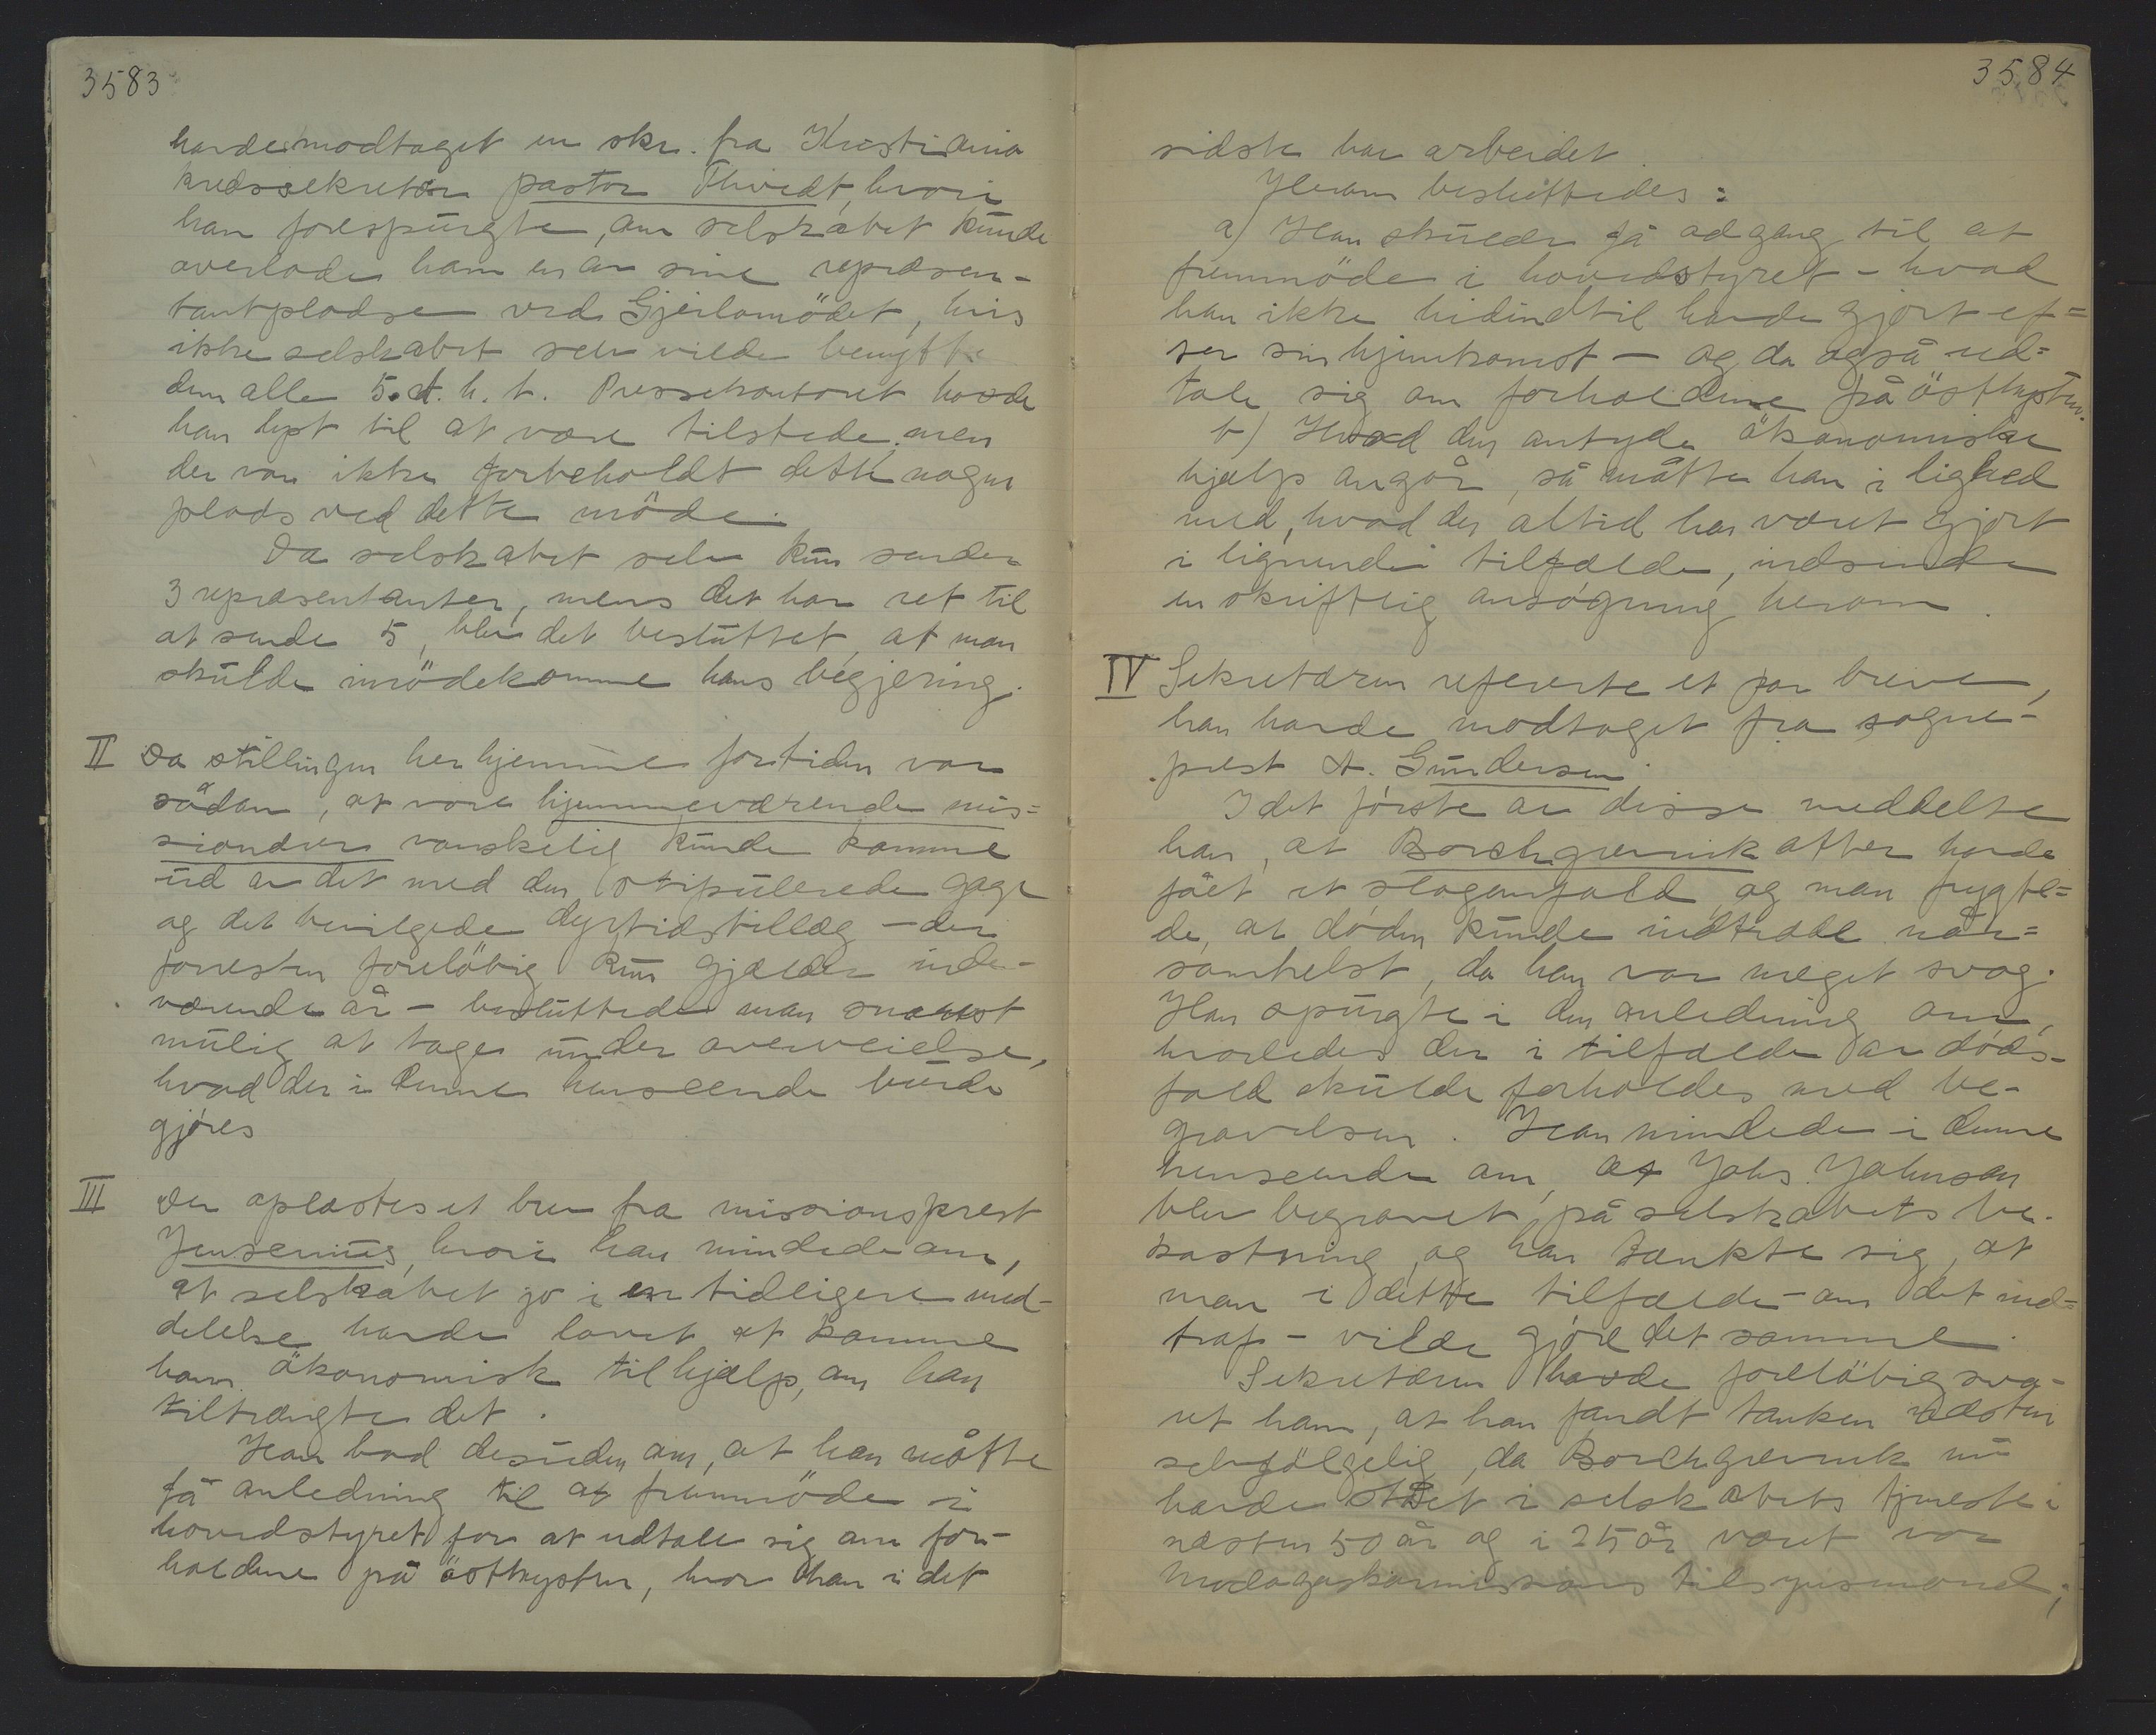 3583
havde modtaget en skr. fra Kristiania
kredssekretær pastor Thvedt, hvori
han forespurgte, om selskabet kunde
overlade ham en av sine repræsen-
tantpladse ved Gjeilomödet, hvis
ikke selskabet selv vilde benytte
dem alle 5. d. h. t. Pressekontoret havde
han lyst til at være tilstede. men
der var ikke forbeholdt dette nogen
plads ved dette möde.
Da selskabet selv kun sender
3 repræsentanter, mens det har ret til
at sende 5, blev det besluttet, at man
skulde imödekomme hans begjering.
II Da stillingen her hjemme fortiden var
sådan, at vore hjemmeværende mis=
sionærer vanskelig kunde komme
ud av det med den stipulerede gage
og det bevilgede dyrtidstillæg - der
forresten foreløbig kun gjælder inde-
værende år - besluttede man snarest
mulig at tage under overveielse,
hvad der i denne henseende burde
gjøres
III Der oplæstes et brev fra missionsprest
Jensenius, hvori han mindede om,
at selskabet jo i en tidligere med-
delelse havde lovet at komme
ham ökonomisk til hjælp, om han
tiltrængte det.
Han bad desuden om, at han måtte
få anledning til at fremmöde i
hovedstyret for at udtale sig om for-
holdene på östkysten, hvor han i det
3584
sidste har arbeidet.
Herom besluttedes:
a) Han skulde få adgang til at
fremmöde i hovedstyret - hvad
han ikke hidindtil havde gjort ef=
ter sin hjemkomst - og da også ud=
tale sig om forholdene på östkysten.
b) Hvad den antydede ökonomiske
hjælp angår, så måtte han i lighed
med, hvad der altid har været gjort
i lignende tilfælde, indsende
en skriftlig ansøgning herom.
IV Sekretæren refererte et par breve,
han havde modtaget fra sogne-
prest A. Gundersen.
I det første av disse meddelte
han, at Borchgrevink atter havde
fået et slaganfald og man frygte=
de, at døden kunde indtræde når=
somhelst, da han var meget svag.
Han spurgte i den anledning om,
hvorledes der i tilfælde av døds-
fald skulde forholdes med be-
gravelsen. Han mindede i denne
henseende om, at Johs. Johnson
blev begravet på selskabets be-
kostning, og han tænkte sig, at
man i dette tilfælde - om det ind=
traf - vilde gjøre det samme.
Sekretæren havde foreløbig sva-
ret ham, at han fandt tanken næsten
selvfölgelig, da Borchgrevink nu
havde stået i selskabets tjeneste i
næsten 50 år og i 25 år været vor
Madagaskarmissions tilsynsmand;